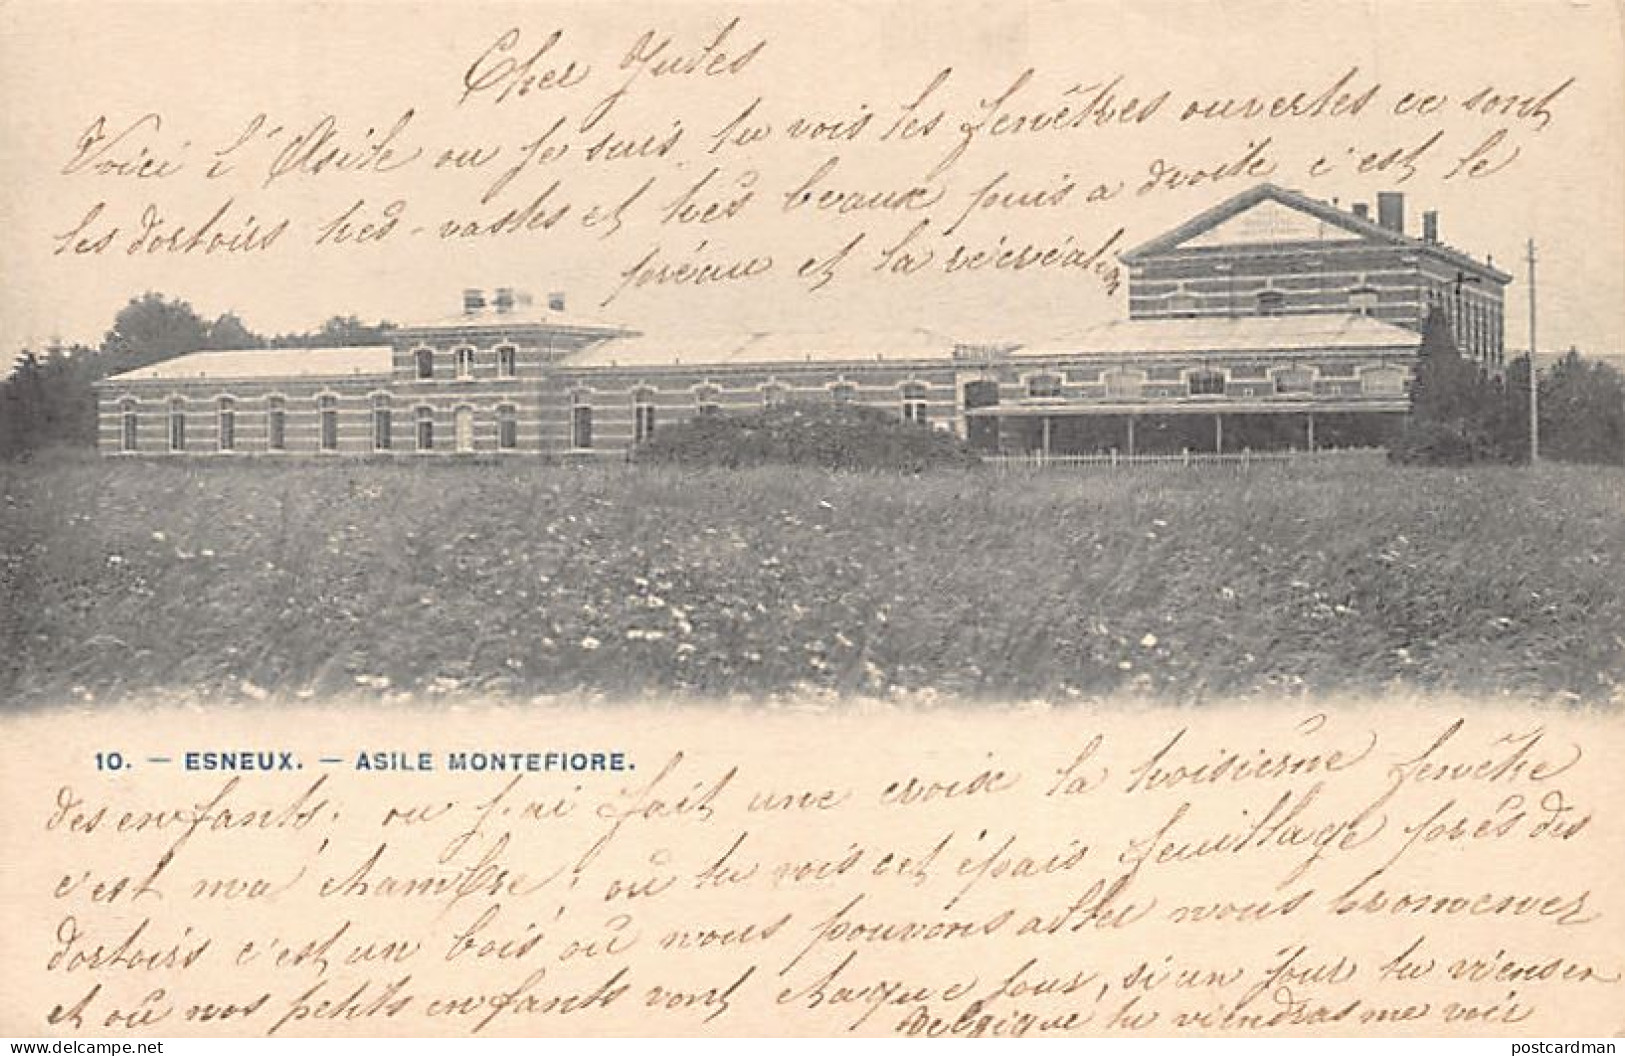 Cher Jules
Voici l'Asile ou je suis tu vois les fenêtres ouvertes ce sont
les dortoirs très-vastes et très beaux puis a droite c'est le
préau et la récréation
10. — ESNEUX. — ASILE MONTEFIORE.
des enfants; ou j'ai fait une croix la troisième fenêtre
c'est ma chambre; où tu vois cet épais feuillage près des
dortoirs c'est un bois où nous pouvons aller nous promener
et où nos petits enfants vont chaque jour, si un jour tu viens en
Belgique tu viendras me voir
postcardman
www.delcampe.net